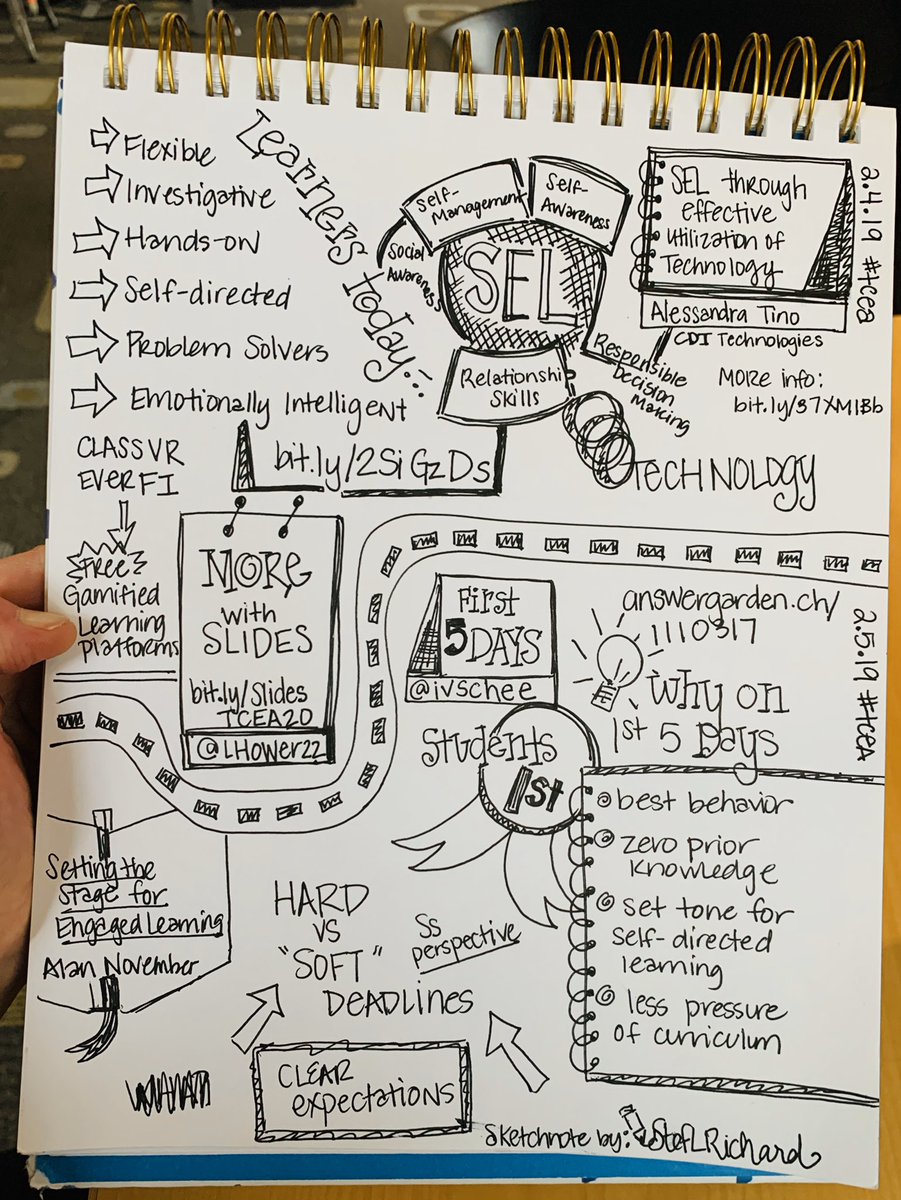 Flexible
Investigative
Hands-on
Self-directed
Problem Solvers
Emotionally Intelligent
Learners today...
Self-
Management
Self-
Awareness
Social
Awareness
SEL
Relationshi
Skills
Responsible
Decision
Making
TECHNOLOGY
SEL through
effective
utilization of
Technology
Alessandra Tino
CDI Technologies
MORE info:
bit.ly/37XMIBb
2.4.19 #tcea
CLASSVR
EVERFI
FREE
Gamified
Learning
Platforms
bit.ly/2SiGzDs
MORE
with
SLIDES
bit.ly/Slides
TCEA20
@LHower22
First
5 DAYS
@ivschee
answergarden.ch/
1110317
Why on
1st 5 Days
2.5.19 #tcea
Students
1st
best behavior
zero prior
knowledge
set tone for
self-directed
learning
less pressure
of curriculum
Setting the
Stage for
Engaged Learning
Alan November
HARD
VS
"SOFT"
DEADLINES
Ss
perspective
CLEAR
expectations
sketchnote by: StefLRichard